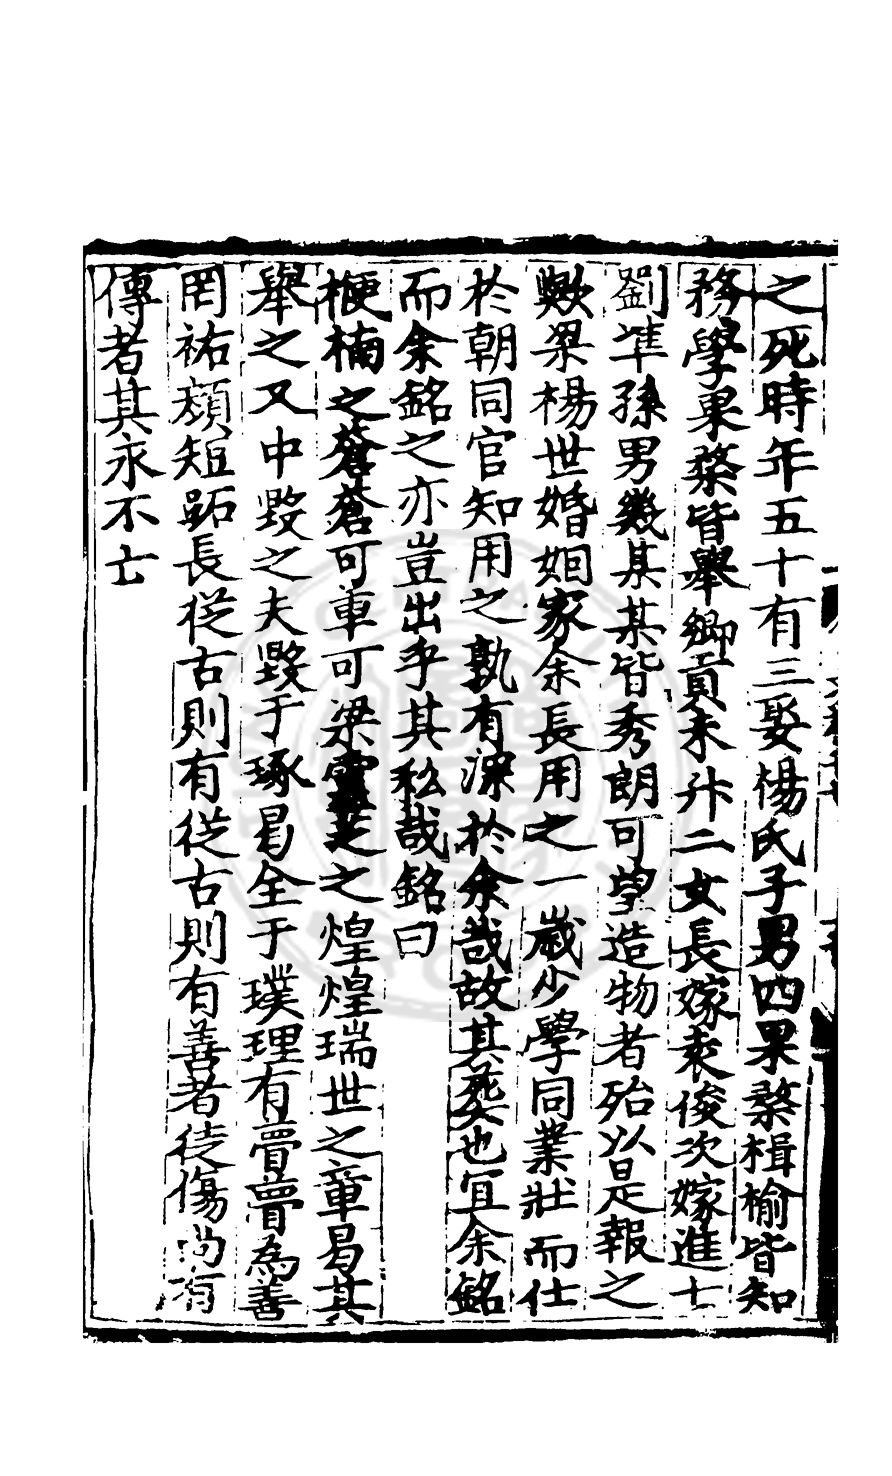 之死時年五十有三娶楊氏子男四果棨楫榆皆知
務學果棨皆舉鄉貢未升二女長嫁袁俊次嫁進士
劉準孫男幾某某皆秀朗可望造物者殆以是報之
歟梁楊世婚姻家余長用之一歲少學同業壯而仕
於朝同官知用之孰有深於余哉故其葬也冝余銘
而余銘之亦豈出乎其私哉銘曰
楩楠之蒼蒼可車可梁靈芝之煌煌瑞世之章曷其
舉之又中毀之夫毀于琢曷全于璞理有㝱㝱為善
罔祐顏短跖長從古則有從古則有善者徒傷尚有
傳者其永不亡